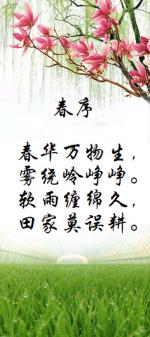 春序
春华万物生，
雾绕岭峥峥。
软雨缠绵久，
田家莫误耕。